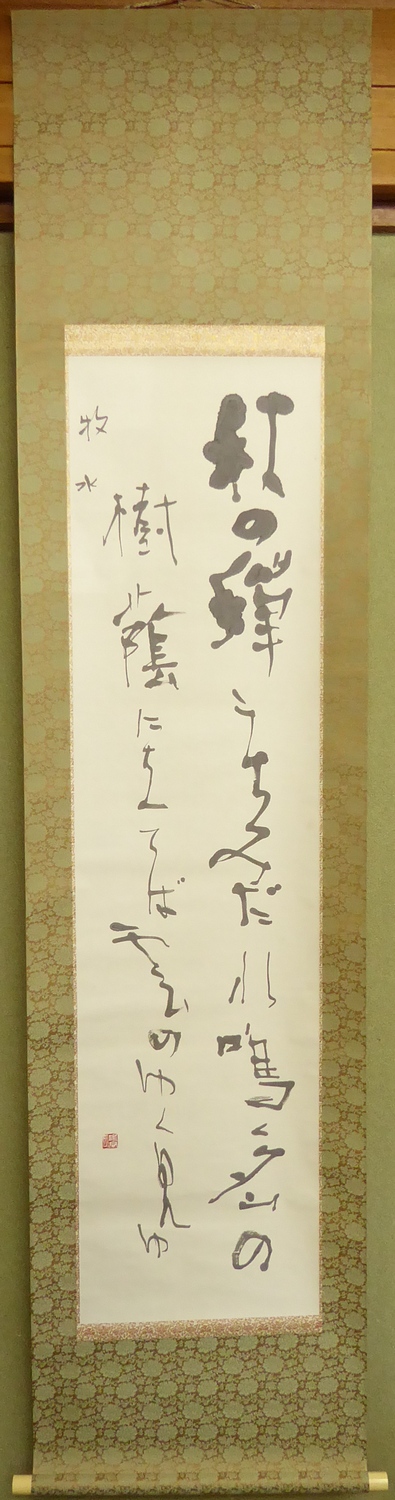 秋の蝉うちみだれ鳴く夕山の
樹蔭にたてば雲のゆく見ゆ
牧水